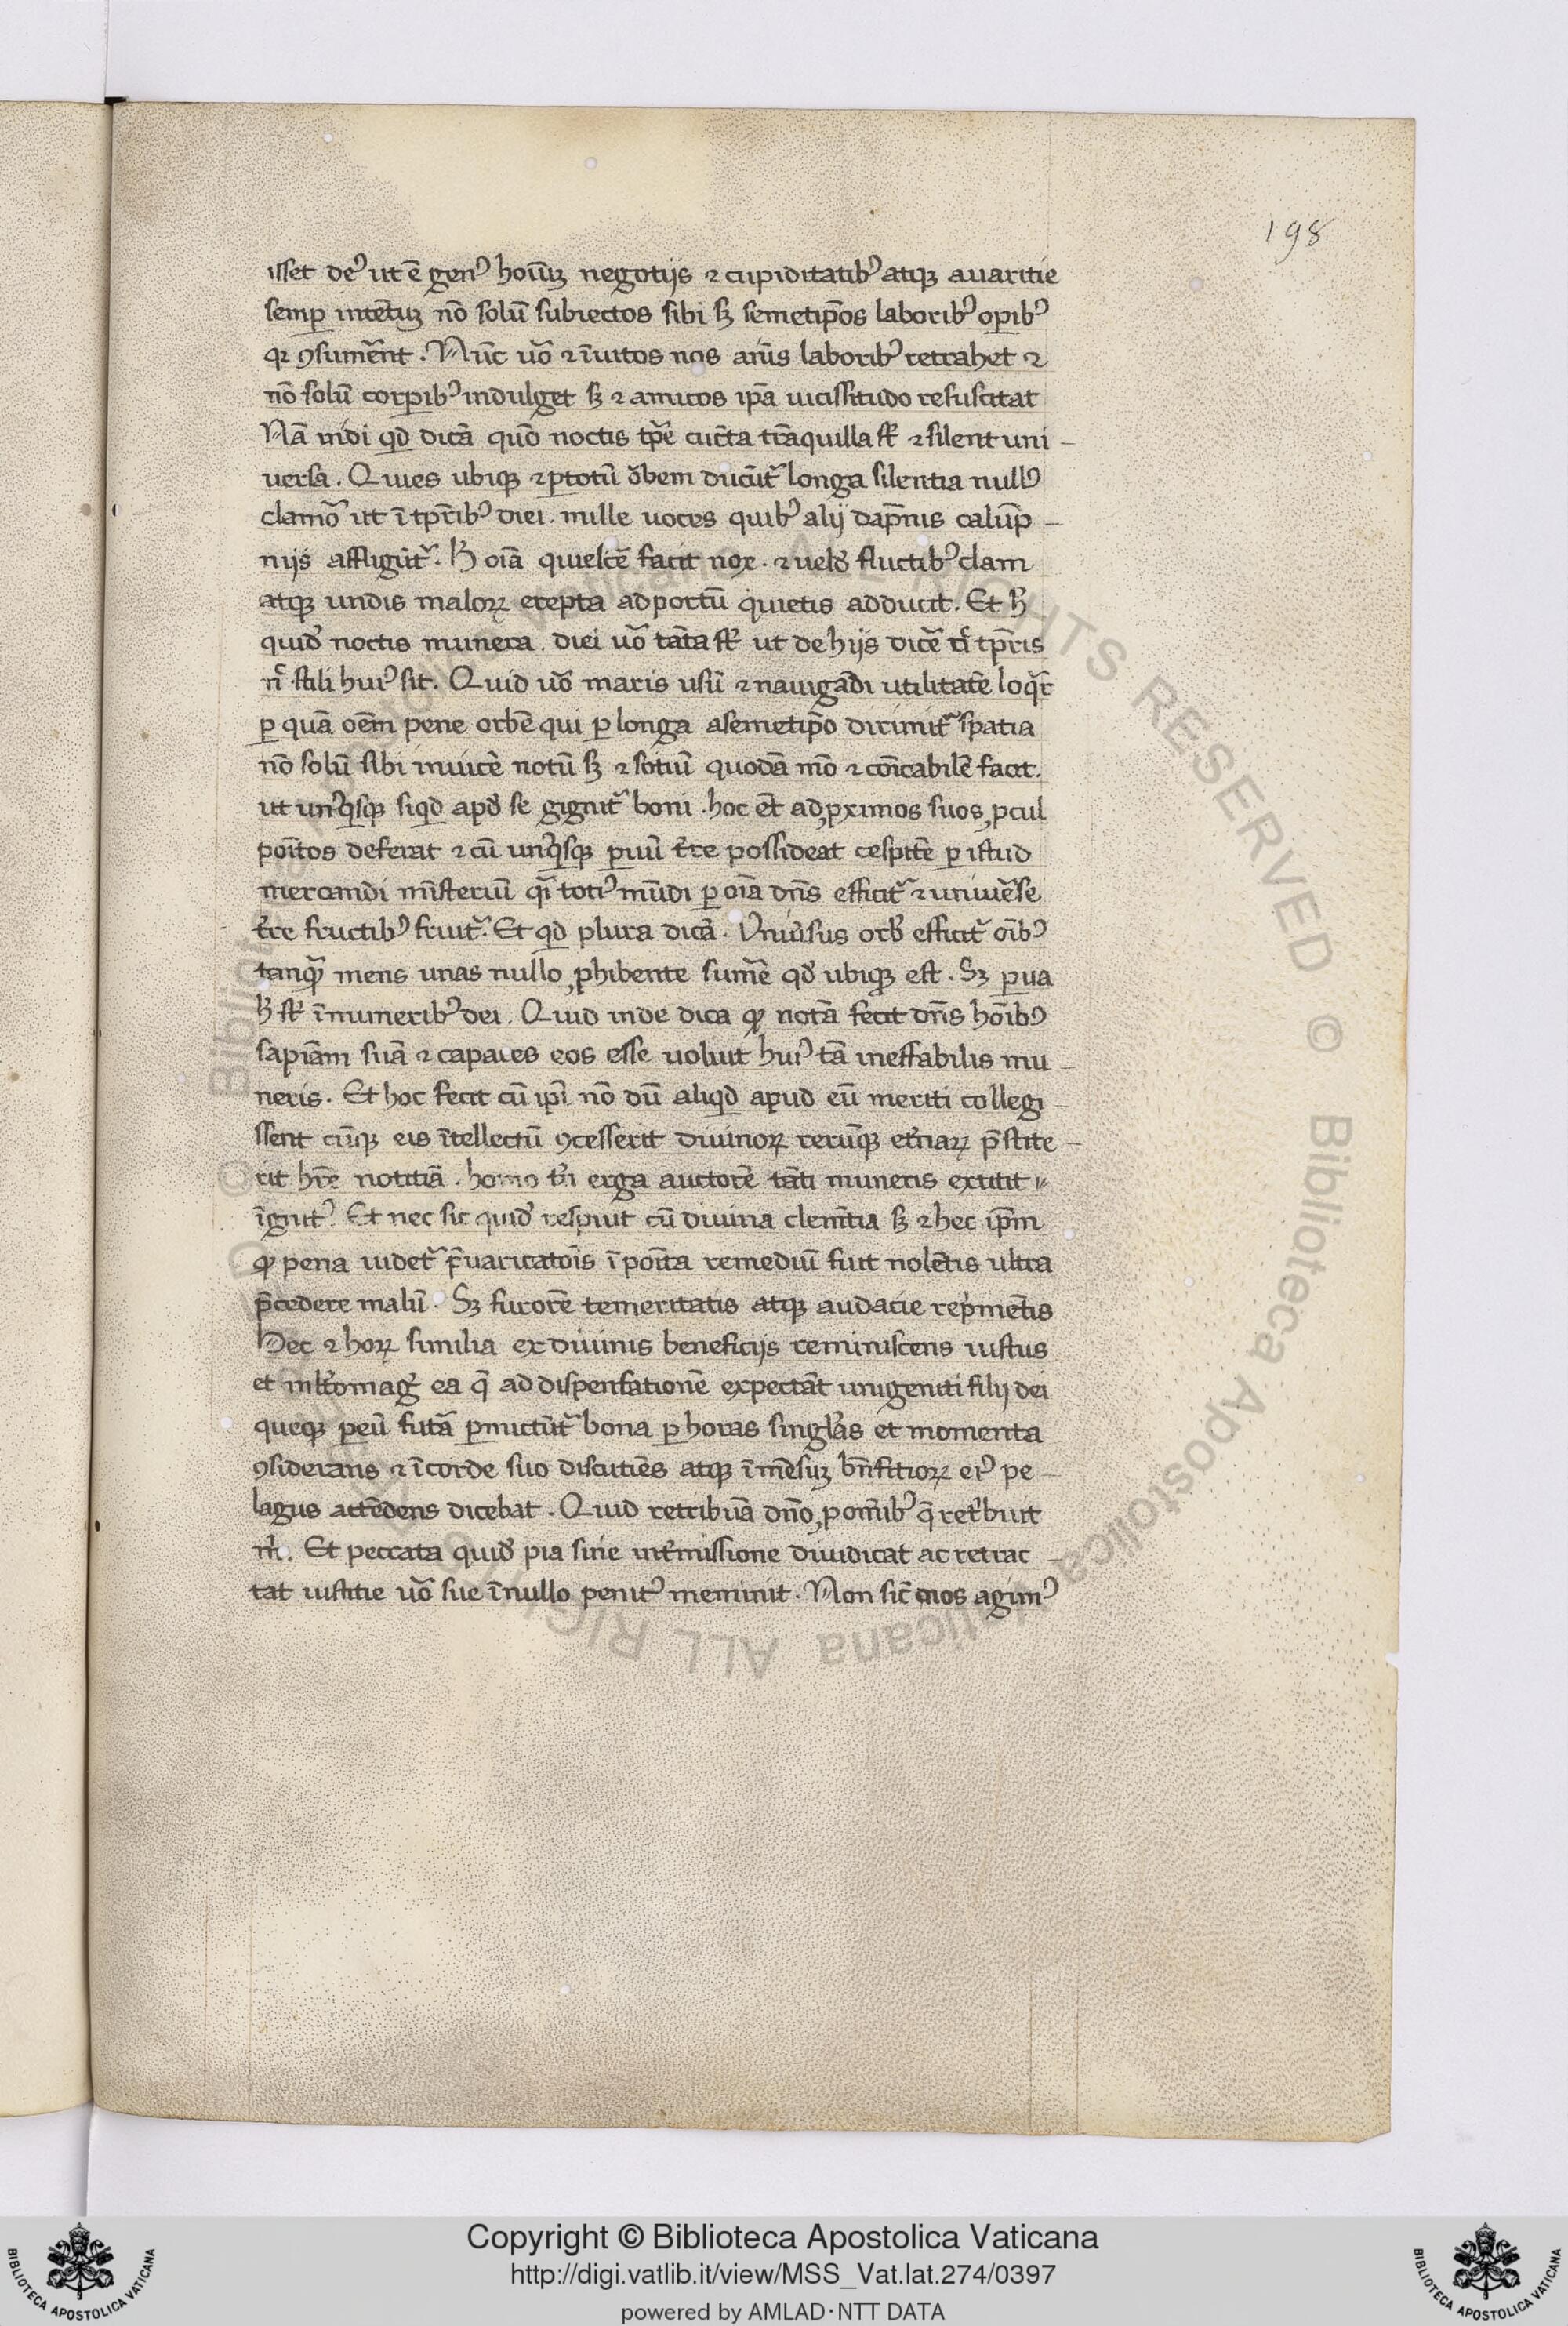 198
isset deꝰ ut ē genꝰ hoīuꝫ negotijs ⁊ cupiditatibꝰ atqꝫ auaritie
semꝑ intētuꝫ nō solū subiectos sibi sꝫ semetip̄os laboribꝰ oꝑibꝰ
qꝫ ꝯsum̄ent . Nūc uō ⁊ īuitos nos laboribꝰ retrahet ⁊
nō solū corꝑibꝰ indulget sꝫ ⁊ amicos ip̄a uicissitudo resuscitat
Nā qd dicā quō noctis tp̄e cūcta trāquilla sť ⁊ silent uni -
uersa . Quies ubiqꝫ ⁊ ꝑ totū orbem ducūt᷑ longa silentia nullꝰ
clamor ut ī tp̄ribꝰ diei . mille uoces quibꝰ alij dāpnis calūp -
nijs affligūt᷑ . H̄ oīa quiescē facit nox . ⁊ uelud fluctibꝰ clam
atqꝫ undis maloꝝ erepta ad portū quietis adducit . Et h̄
quid noctis munera . diei uō tāta sť ut de hijs dicē tp̄ris
n̄ stili huiꝰ sit . Quid uō maris usū ⁊ nauigādi utilitatē loq̄r
ꝑ quā oēm pene orbē qui ꝑ longa a semetip̄o dirimit᷑ spatia
nō solū sibi inuicē notū sꝫ ⁊ sotiū quodā mō ⁊ cōicabilē facit .
ut unꝰqsqꝫ siqd apd se gignit᷑ boni . hoc et̄ ad ꝓximos suos ꝓcul
poītos deferat ⁊ cū unꝰqsqꝫ ꝑuū tr̄re possideat cespitē ꝑ istud
mercandi mīsteriū qi totiꝰ mūdi ꝑ oīa dn̄s efficit᷑ ⁊ uniuēse
tr̄re fructibꝰ fruit᷑ . Et qd plura dicā . Vniūsus orb efficit᷑ oībꝰ
tanqꝫ mens unas nullo ꝓhibente sum̄e qd ubiqꝫ est . Sꝫ ꝑua
h̄ sť ī muneribꝰ dei . Quid inde dica ꝙ notā fecit dn̄s hoībꝰ
sapiām suā ⁊ capaces eos esse uoluit huiꝰ tā ineffabilis mu -
neris . Et hoc fecit cū ip̄i nō dū aliqd apud eū meriti collegi -
ssent cūqꝫ eis ītellectū ꝯcesserit diuinoꝝ rerūqꝫ et̄naꝝ p̄stite -
rit hr̄e notitiā . homo tn̄ erga auctorē tāti muneris extitit
īgrat̄ . Et nec sic quid respuit cū diuina clem̄tia sꝫ ⁊ hec ip̄m
ꝙ pena uidet᷑ p̄uaricatoīs ī poīta remediū fuit nolētis ultra
p̄cedere malū . Sꝫ furorē temeritatis atqꝫ audacie rep̄mētis
Hec ⁊ hoꝝ similia ex diuinis beneficijs reminiscens iustus
et mltomag ea q̄ ad dispensationē expectāt unigeniti filij dei
queqꝫ ꝑ eū futā ꝑmictūt᷑ bona ꝑ horas singlas et momenta
ꝯsiderans ⁊ ī corde suo discutiēs atqꝫ īmēsuꝫ bn̄fitioꝝ eiꝰ pe -
lagus attēdens dicebat . Quid retribuā dn̄o ꝓ omībꝰ q̄ ret̄buit
m̄ . Et peccata quid pia sine int̄missione diiudicat ac retrac -
tat iustitie uō sue ī nullo penitꝰ meminit . Non sic nos agimꝰ
Copyright © Biblioteca Apostolica Vaticana
http://digi.vatlib.it/view/MSS_Vat.lat.274/0397
powered by AMLAD·NTT DATA
BIBLIOTECA APOSTOLICA VATICANA
BIBLIOTECA APOSTOLICA VATICANA